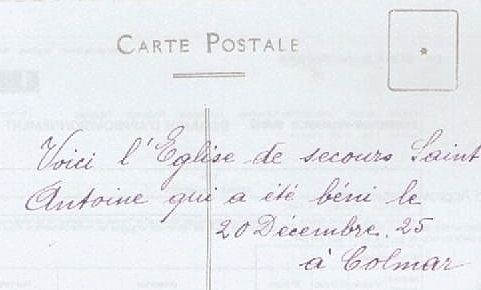 CARTE POSTALE
Voici l'Eglise de secours Saint
Antoine qui a été béni le
20 Décembre. 25
à Colmar